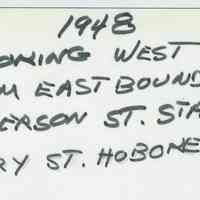 1948
OKING WEST
M EAST BOUND
ERSON ST. STA
RY ST. HOBOKE